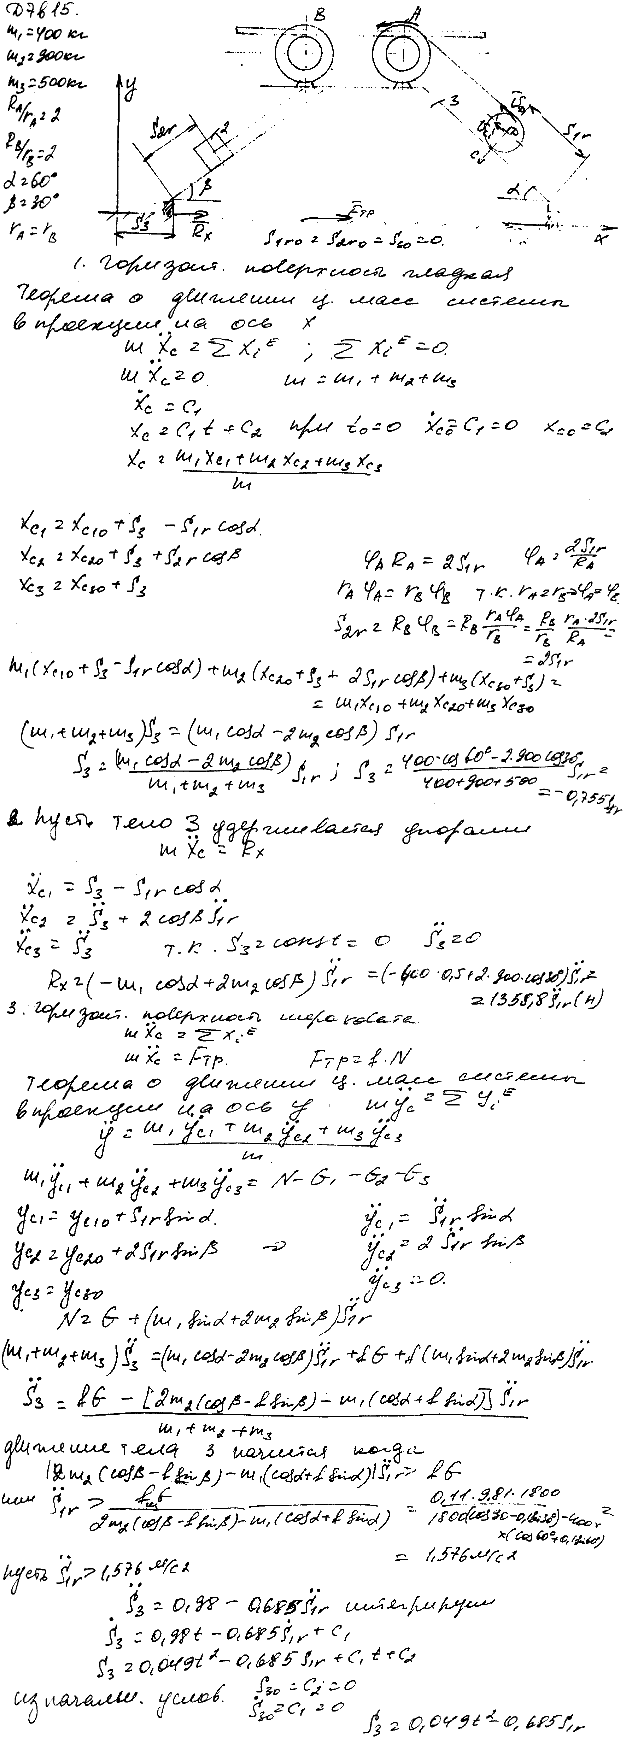 D7B15.
m₁=400 кг
m₂=900кг
m₃=500кг
R_A/r_A=2
R_B/r_B=2
α=60°
β=30°
r_A=r_B
y
S₂r
2
β
S₃
R̄x
B
A
3
S₁r
α
x
F̄тр
S₁r₀ = S₂r₀ = S₃₀ = 0.
1. Горизонт. поверхность гладкая
Теорема о движении ц. масс системы
в проекции на ось x
mẍc = ΣXᵢᴱ ; ΣXᵢᴱ = 0.
mẍc = 0. m = m₁ + m₂ + m₃
ẋc = C₁
xc = C₁t + C₂ при t₀=0 ẋc₀=C₁=0 xc₀=C₂
xc = (m₁xc₁+m₂xc₂+m₃xc₃)/m
xc₁ = xc₁₀ + S₃ - S₁r cosα
xc₂ = xc₂₀ + S₃ + S₂r cosβ
xc₃ = xc₃₀ + S₃
φ_A R_A = 2S₁r φ_A = 2S₁r/R_A
r_Aφ_A = r_Bφ_B т.к. r_A=r_B=>φ_A=φ_B
S₂r = R_Bφ_B = R_B r_Aφ_A/r_B = R_B/r_B · r_A·2S₁r/R_A =
= 2S₁r
m₁(xc₁₀+S₃-S₁r cosα)+m₂(xc₂₀+S₃+2S₁r cosβ)+m₃(xc₃₀+S₃)=
= m₁xc₁₀+m₂xc₂₀+m₃xc₃₀
(m₁+m₂+m₃)S₃ = (m₁cosα-2m₂cosβ)S₁r
S₃ = (m₁cosα-2m₂cosβ)/(m₁+m₂+m₃) S₁r ; S₃ = (400·cos60°-2·900cos30)/(400+900+500) S₁r =
= -0,755S₁r
2. Пусть тело 3 удерживается упорами
mẍc = Rx
ẍc₁ = S̈₃ - S̈₁r cosα
ẍc₂ = S̈₃ + 2cosβ S̈₁r
ẍc₃ = S̈₃ т.к. S₃=const=0 S̈₃=0
Rx=(-m₁cosα+2m₂cosβ)S̈₁r =(-400·0,5+2·900·cos30)S̈₁r=
=1358,8S̈₁r(н)
3. Горизонт. поверхность шероховата
mẍc = ΣXᵢᴱ
mẍc = Fтр. Fтр=f·N
Теорема о движении ц. масс системы
в проекции на ось y mÿc = ΣYᵢᴱ
ÿ = (m₁ÿc₁+m₂ÿc₂+m₃ÿc₃)/m
m₁ÿc₁+m₂ÿc₂+m₃ÿc₃ = N-G₁-G₂-G₃
yc₁ = yc₁₀+S₁r sinα. ÿc₁ = S̈₁r sinα
yc₂ = yc₂₀+2S₁r sinβ => ÿc₂ = 2S̈₁r sinβ
yc₃ = yc₃₀ ÿc₃ = 0.
N = G+(m₁sinα+2m₂sinβ)S̈₁r
(m₁+m₂+m₃)S̈₃ = (m₁cosα-2m₂cosβ)S̈₁r+fG+f(m₁sinα+2m₂sinβ)S̈₁r
S̈₃ = (fG-[2m₂(cosβ-fsinβ)-m₁(cosα+fsinα)]S̈₁r)/(m₁+m₂+m₃)
движение тела 3 начнется когда
|2m₂(cosβ-fsinβ)-m₁(cosα+fsinα)|S̈₁r > fG
или S̈₁r > fG/(2m₂(cosβ-fsinβ)-m₁(cosα+fsinα)) = 0,11·9,81·1800/(1800(cos30-0,11sin30)-400×
×(cos60+0,11sin60)) =
= 1,576м/с2
Пусть S̈₁r > 1,576 м/с2
S̈₃ = 0,98 - 0,685S̈₁r интегрируем
Ṡ₃ = 0,98t - 0,685Ṡ₁r + C₁
S₃ = 0,049t² - 0,685S₁r + C₁t + C₂
из начальн. услов. S₃₀ = C₂ = 0
Ṡ₃₀ = C₁ = 0
S₃ = 0,049t² - 0,685S₁r